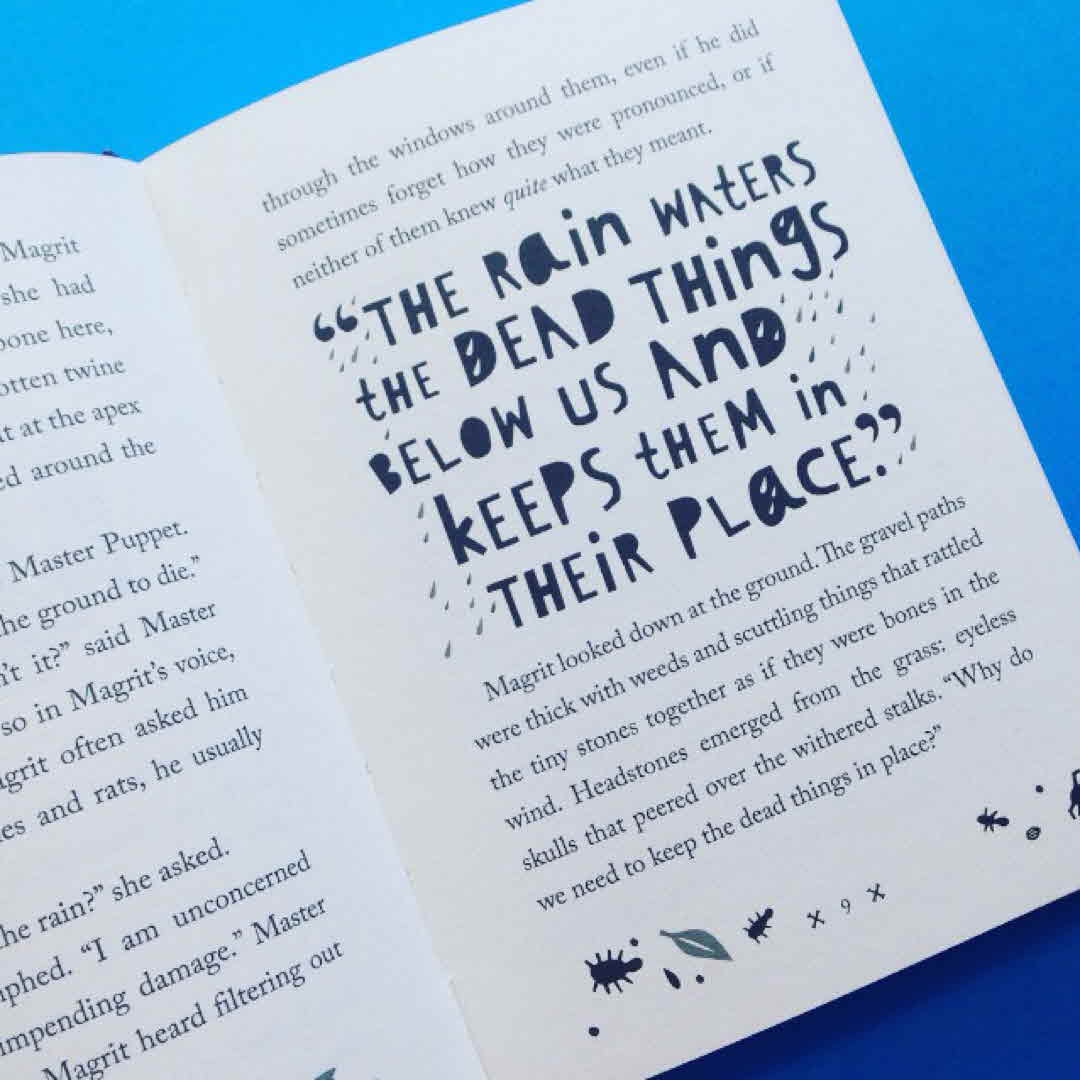 Magrit
she had
bone here,
otten twine
at the apex
ed around the
Master Puppet.
he ground to die.”
it?” said Master
so in Magrit’s voice,
agrit often asked him
and rats, he usually
he rain?” she asked.
“I am unconcerned
impending damage.” Master
Magrit heard filtering out
through the windows around them, even if he did
sometimes forget how they were pronounced, or if
neither of them knew quite what they meant.
“THE RAiN WATERS
tHE DEAD THiNgS
BELOW US AND
kEEPS tHEM iN
THEiR PLACE.”
Magrit looked down at the ground. The gravel paths
were thick with weeds and scuttling things that rattled
the tiny stones together as if they were bones in the
wind. Headstones emerged from the grass: eyeless
skulls that peered over the withered stalks. “Why do
we need to keep the dead things in place?”
x 9 x